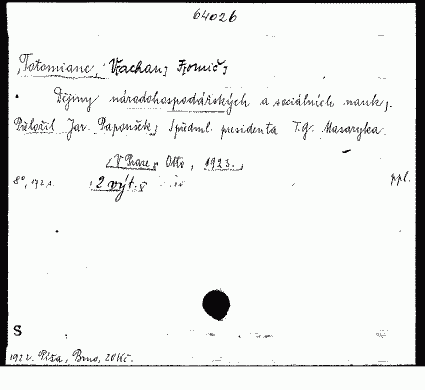 64026
Totomianc, Vachan Fomič
Dějiny národohospodářských a sociálních nauk.
Přeložil Jar. Papoušek; Spředml. presidenta T.G. Masaryka.
V Praze, Otto, 1923.
8°, 172 s. 2 výt. ppl.
S
1922. Píša, Brno, 20 Kč.